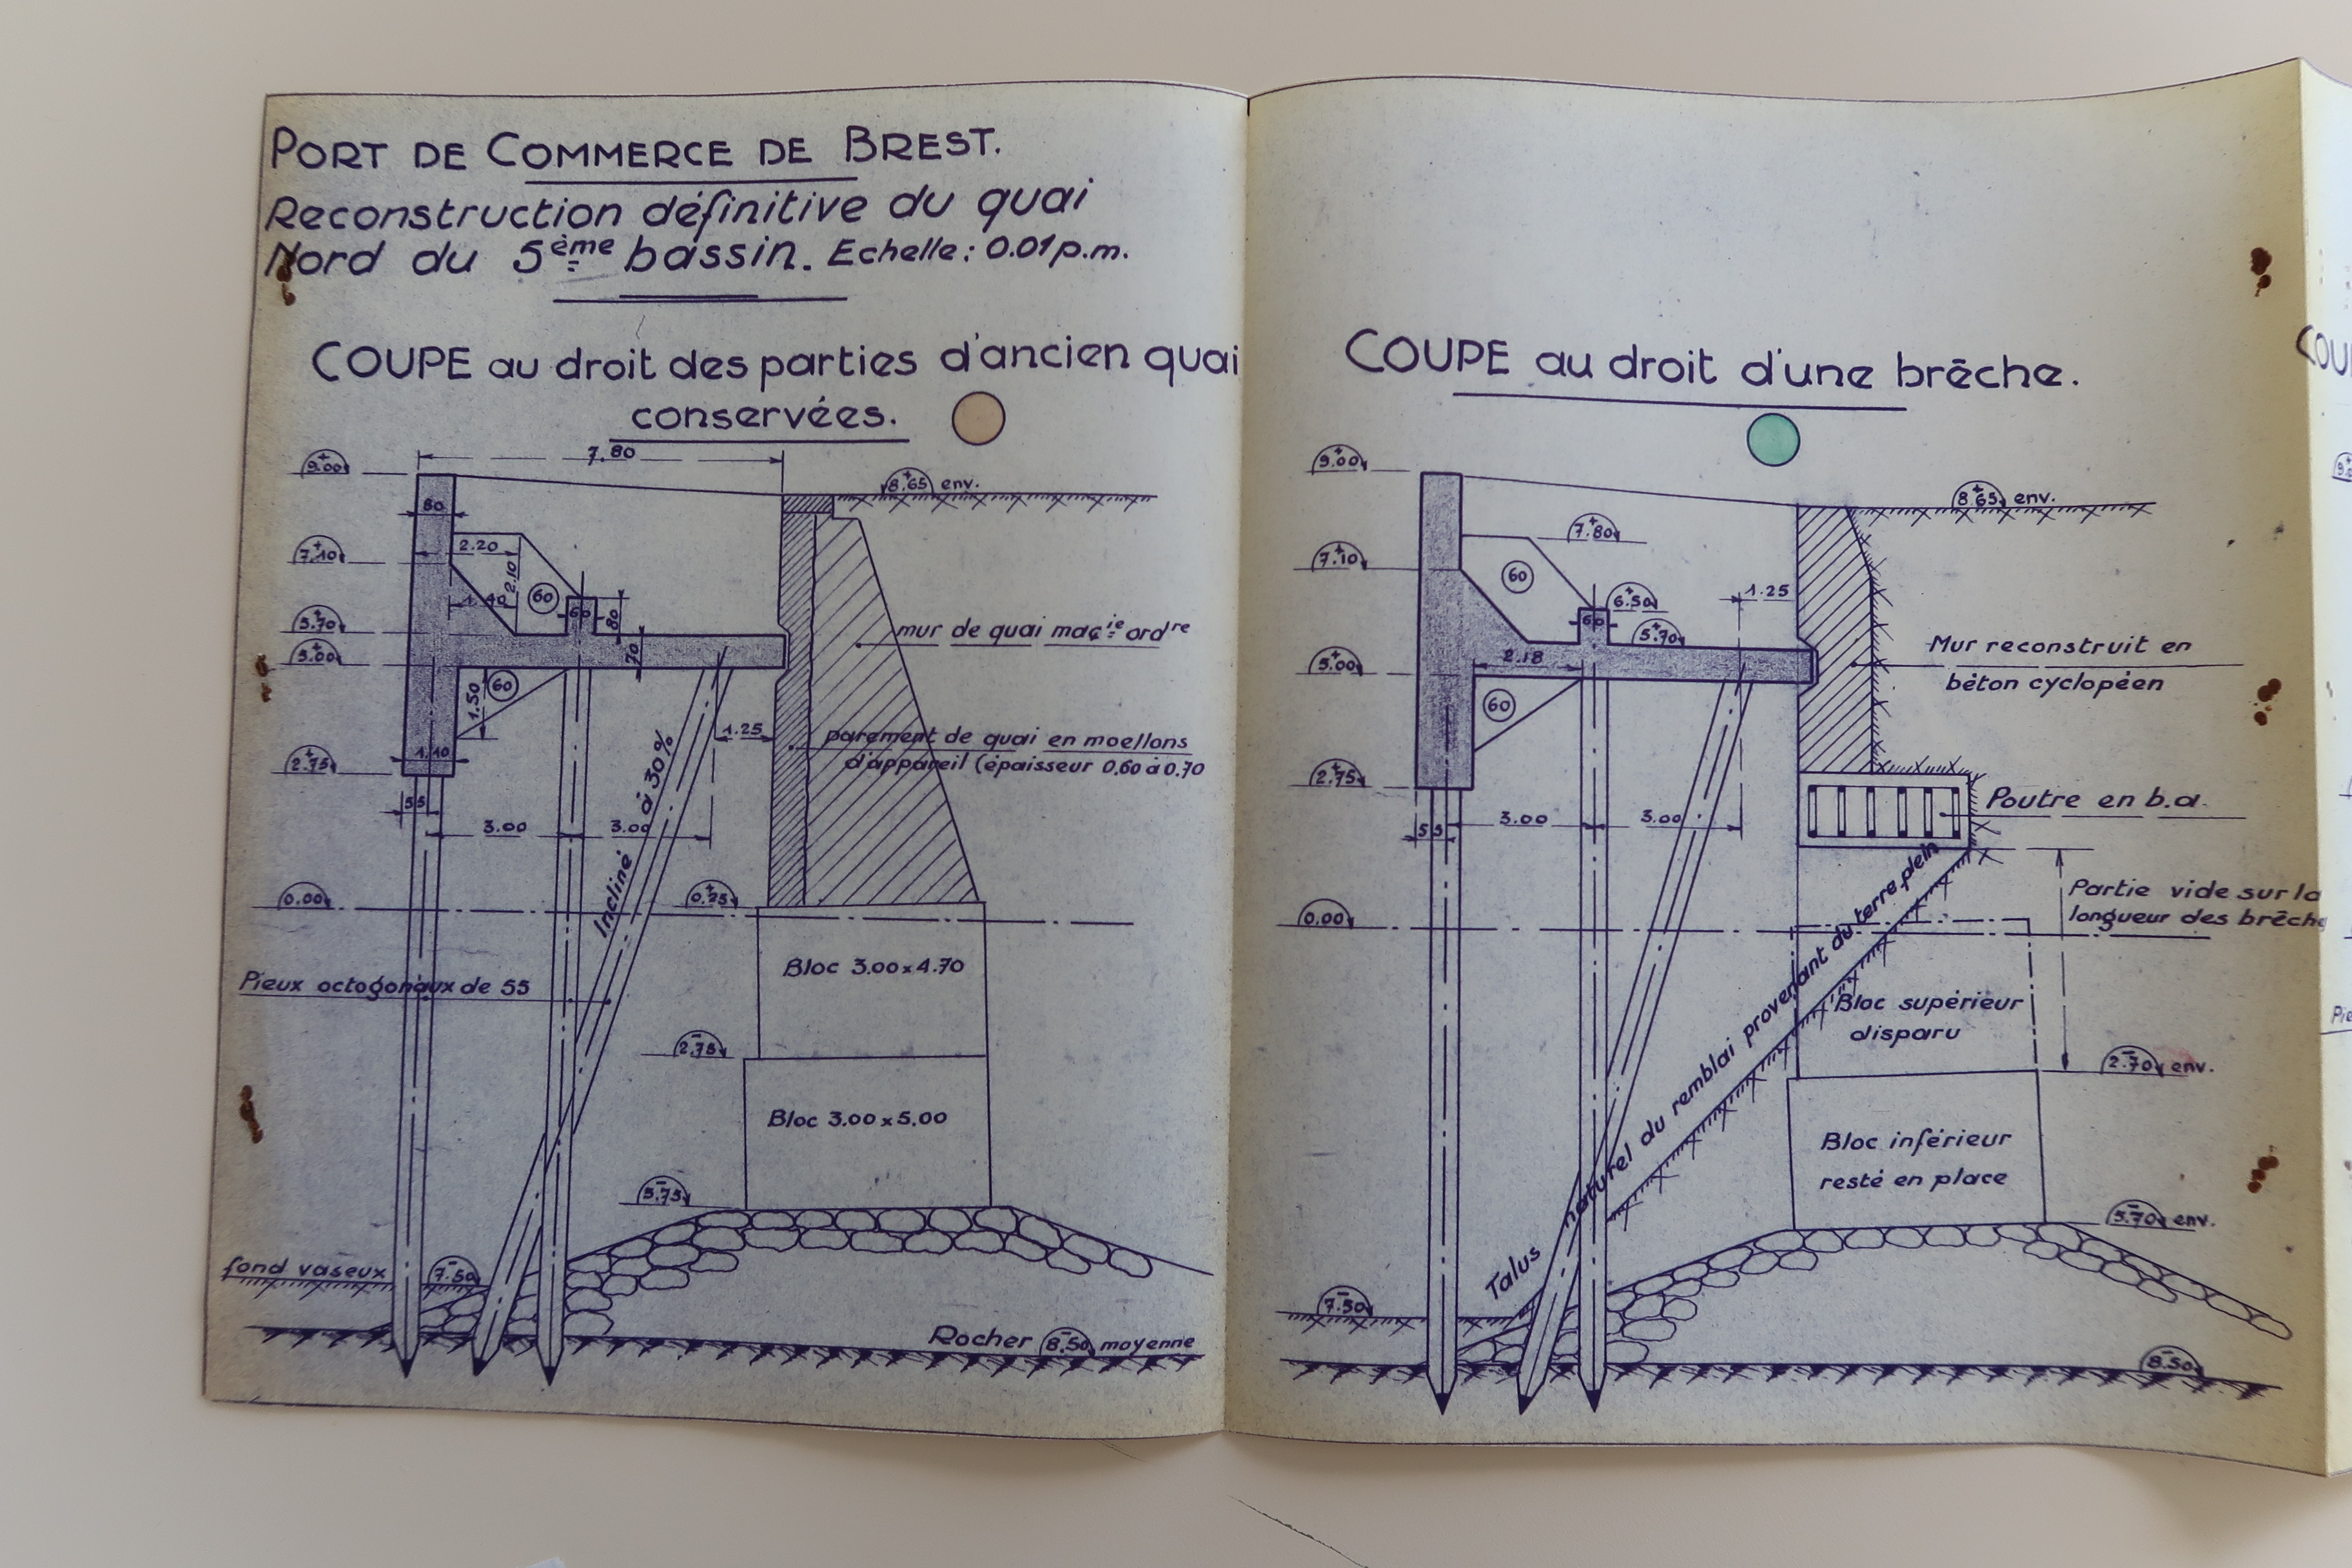 PORT DE COMMERCE DE BREST.
Reconstruction définitive du quai
Nord du 5ème bassin. Echelle: 0.01 p.m.
COUPE au droit des parties d'ancien quai
conservées.
7.80
+
9.00
+
8.65 env.
80
+
7.10
2.20
2.10
1.40
60
60
80
+
5.70
+
5.00
70
mur de quai maçie ordre
1.50
60
1.25
parement de quai en moellons
d'appareil (épaisseur 0.60 à 0.70
1.10
+
2.75
55
3.00
3.00
Incliné à 30%
0.00
+
0.25
Bloc 3.00 x 4.70
Pieux octogonaux de 55
-
2.75
Bloc 3.00 x 5.00
-
5.75
fond vaseux
-
7.50
Rocher
-
8.50 moyenne
COUPE au droit d'une brêche.
+
9.00
+
8.65 env.
+
7.80
+
7.10
60
+
6.50
1.25
60
+
5.70
+
5.00
2.18
Mur reconstruit en
béton cyclopéen
60
+
2.75
Poutre en b.a.
55
3.00
3.00
Partie vide sur la
longueur des brêche
0.00
Talus naturel du remblai provenant du terre plein
Bloc supérieur
disparu
-
2.70 env.
Bloc inférieur
resté en place
-
5.70 env.
-
7.50
-
8.50
COU
9.
Pie